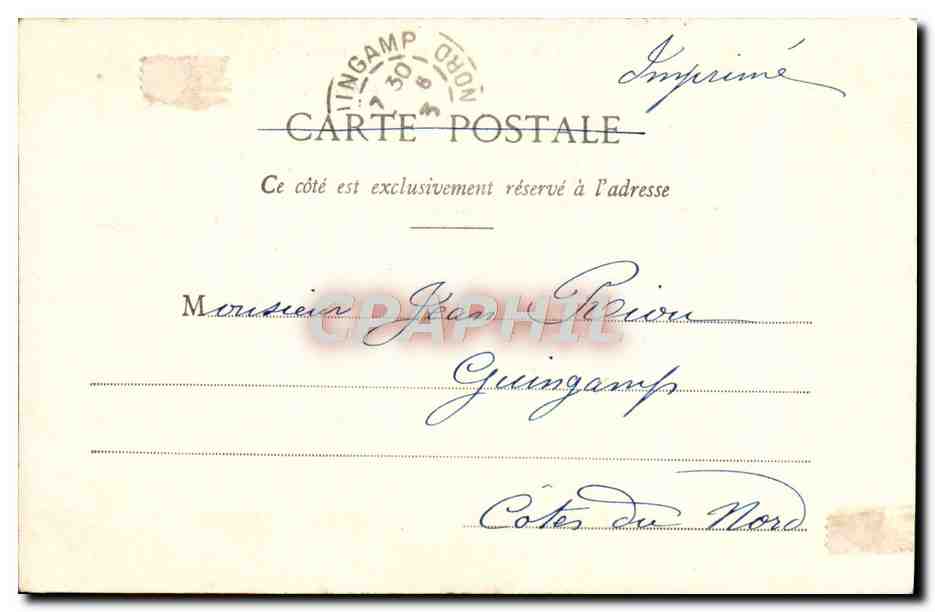 Imprimé
GUINGAMP NORD
7 30
8 3
CARTE POSTALE
Ce côté est exclusivement réservé à l'adresse
Monsieur Jean Riou
CPAPHIL
Guingamp
Côtes du Nord